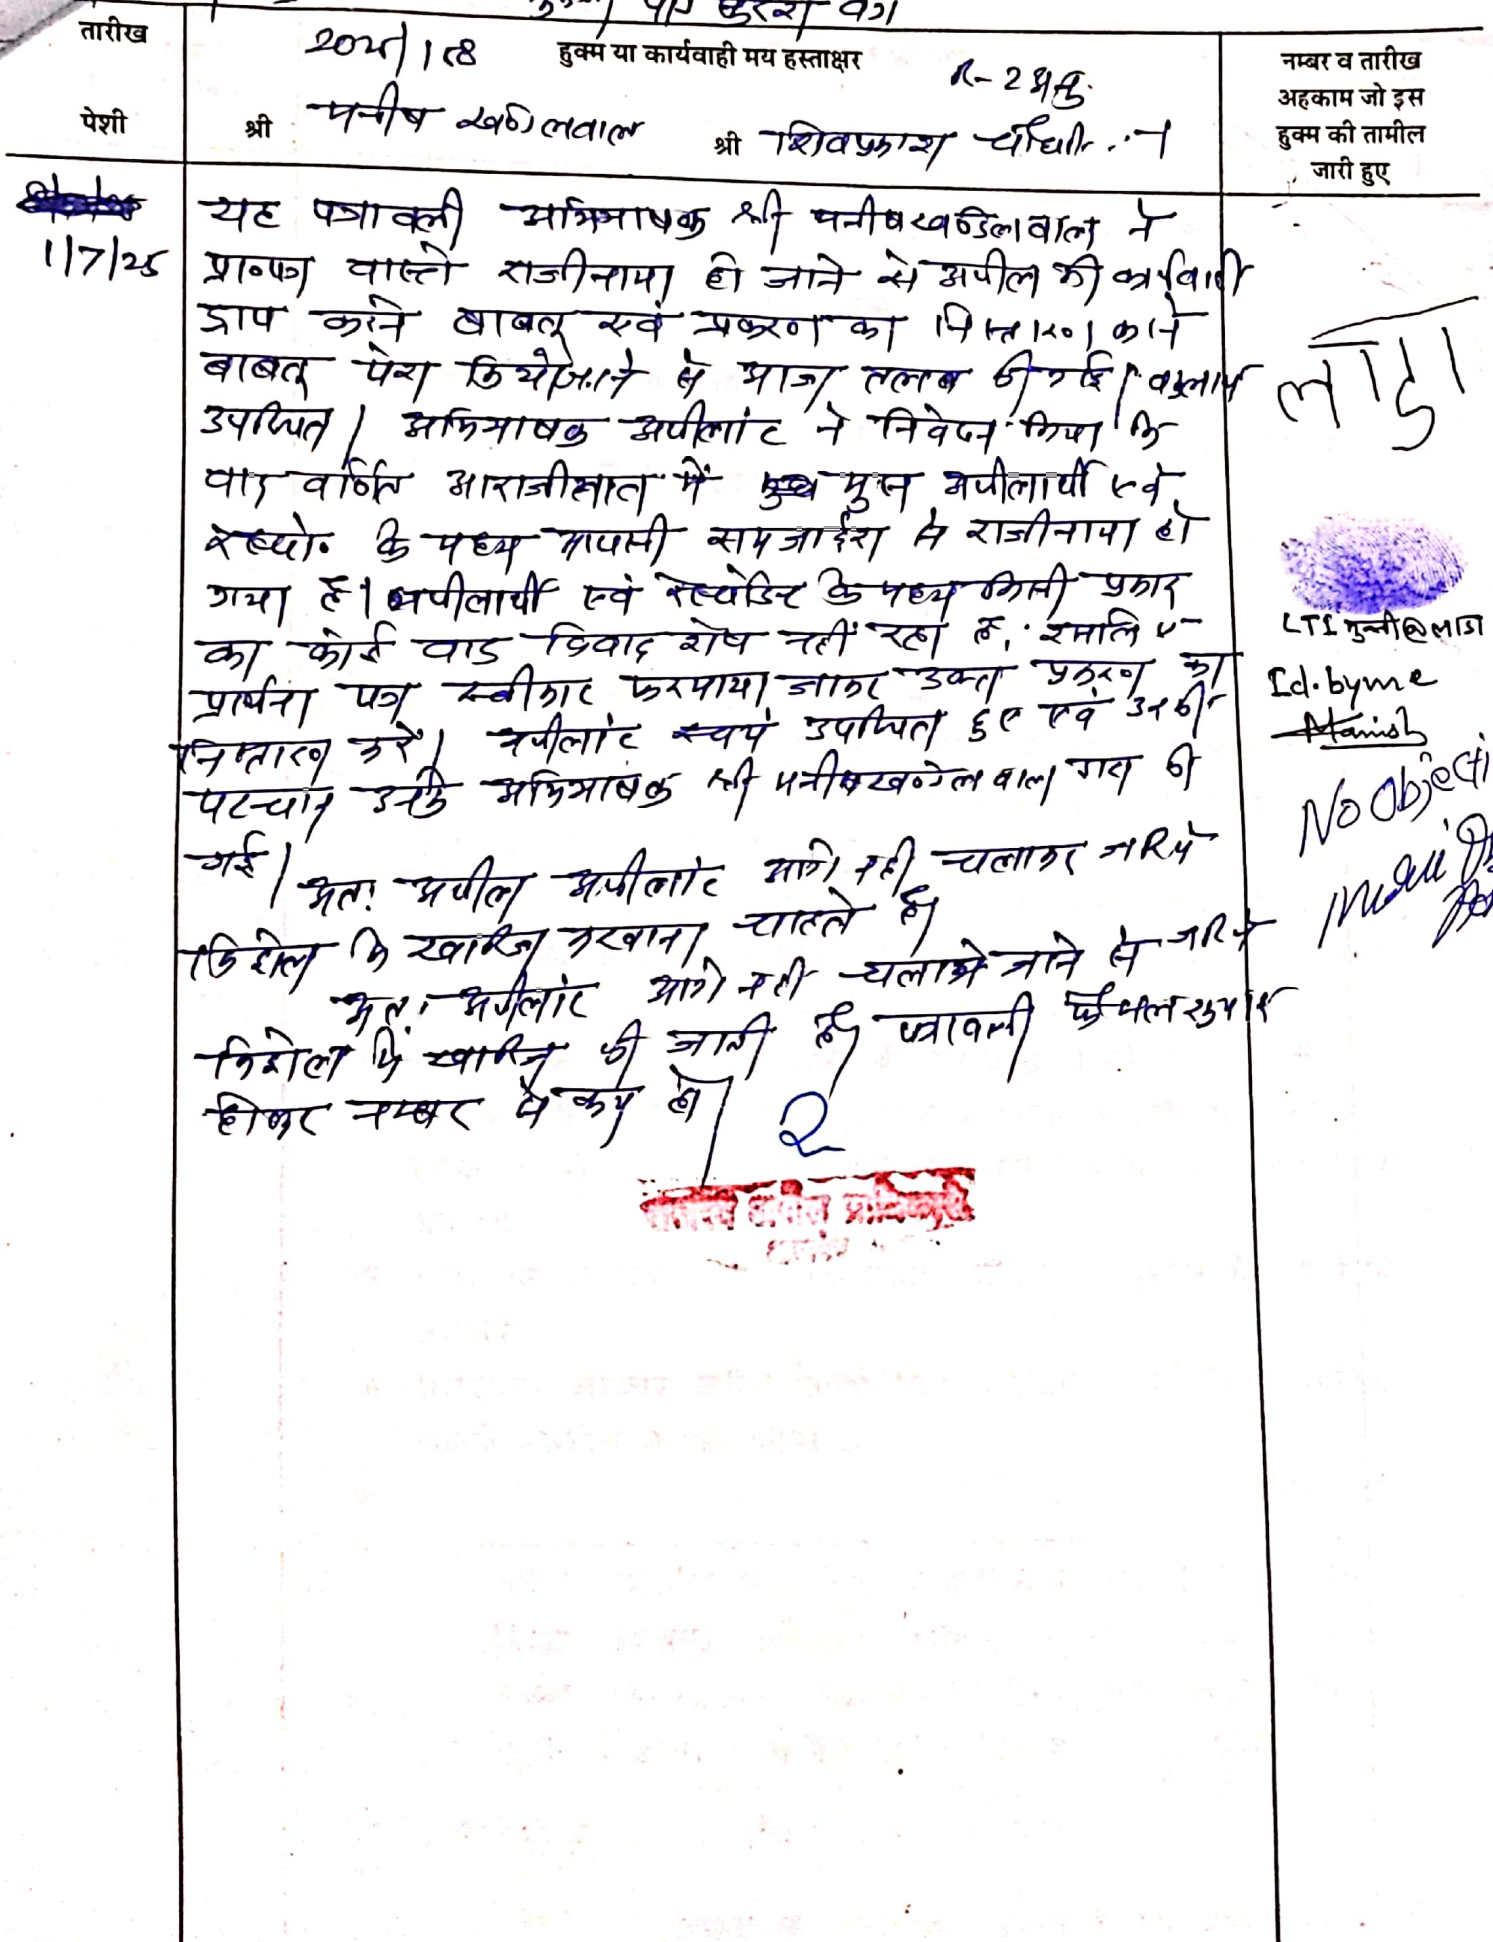 तारीख
पेशी
हुक्म या कार्यवाही मय हस्ताक्षर
श्री मनीष खण्डेलवाल श्री शिवप्रकाश चौधरी
नम्बर व तारीख
अहकाम जो इस
हुक्म की तामील
जारी हुए
1/7/25
यह पत्रावली अभिभाषक श्री मनीष खण्डेलवाल ने
प्रा०पत्र वास्ते राजीनामा हो जाने से अपील की कार्यवाही
ड्राप करने बाबत् एवं प्रकरण का निस्तारण करने
बाबत् पेश किये जाने से आज तलब की गई। वकलाय
उपस्थित। अभिभाषक अपीलांट ने निवेदन किया कि
वाद वर्णित आराजीयात में मुझ अपीलार्थी एवं
रेस्पो० के मध्य आपसी समजाईश से राजीनामा हो
गया है। अपीलार्थी एवं रेस्पोडेन्ट के मध्य किसी प्रकार
का कोई वाद विवाद शेष नहीं रहा है, इसलिए
प्रार्थना पत्र स्वीकार फरमाया जाकर उक्त प्रकरण का
निस्तारण करें। अपीलांट स्वयं उपस्थित हुए एवं उनकी
पहचान उनके अभिभाषक श्री मनीष खण्डेलवाल द्वारा की
गई।
अतः अपील अपीलांट आगे नही चलाकर जरिये
विड्रोल के खारिज करवाना चाहते है।
अतः अपीलांट आगे नही चलाये जाने से जरिये
विड्रोल के खारिज की जाती है। पत्रावली फैसल शुमार
होकर नम्बर से कम हो।
राजस्व अपील प्राधिकारी
लाडा
LTI मुन्नी @ लाडा
Id. by me
Manish
No Objecti